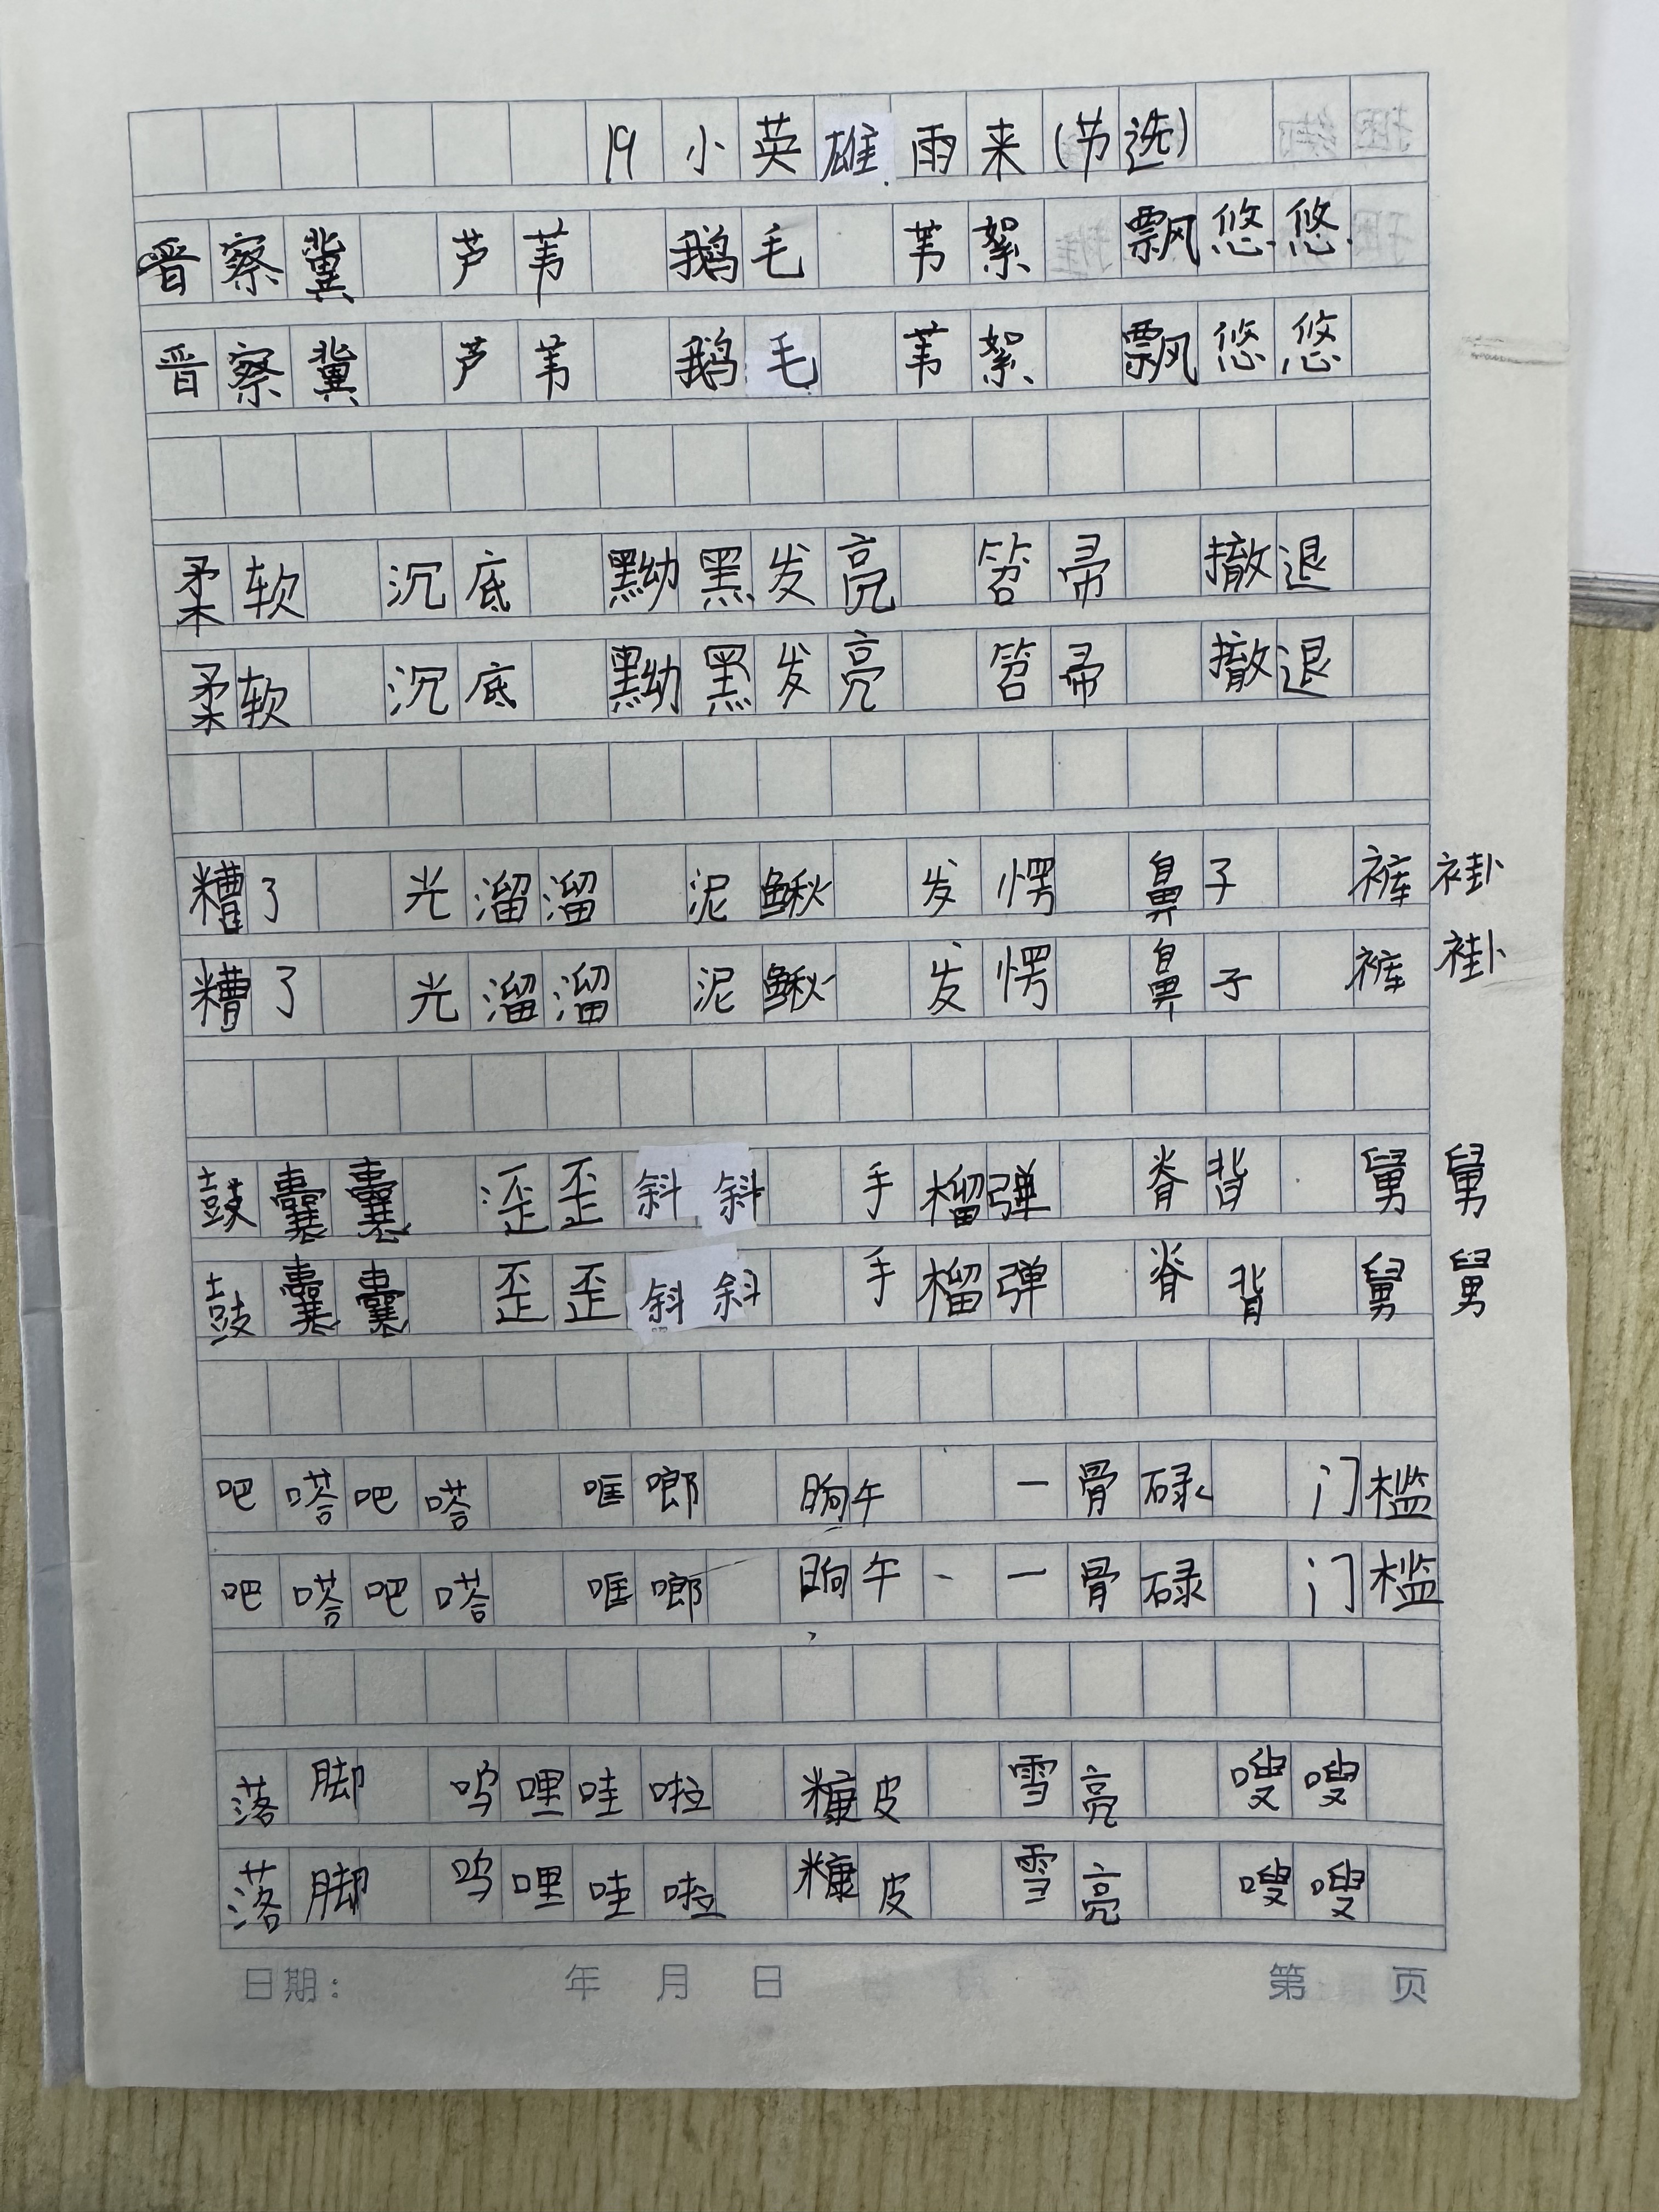 19 小英雄雨来(节选)
晋察冀 芦苇 鹅毛 苇絮 飘悠悠
晋察冀 芦苇 鹅毛 苇絮 飘悠悠
柔软 沉底 黝黑发亮 笤帚 撤退
柔软 沉底 黝黑发亮 笤帚 撤退
糟了 光溜溜 泥鳅 发愣 鼻子 裤褂
糟了 光溜溜 泥鳅 发愣 鼻子 裤褂
鼓囊囊 歪歪斜斜 手榴弹 脊背 舅舅
鼓囊囊 歪歪斜斜 手榴弹 脊背 舅舅
吧嗒吧嗒 哐啷 晌午 一骨碌 门槛
吧嗒吧嗒 哐啷 晌午 一骨碌 门槛
落脚 呜哩哇啦 糠皮 雪亮 嗖嗖
落脚 呜哩哇啦 糠皮 雪亮 嗖嗖
日期: 年 月 日 第 页